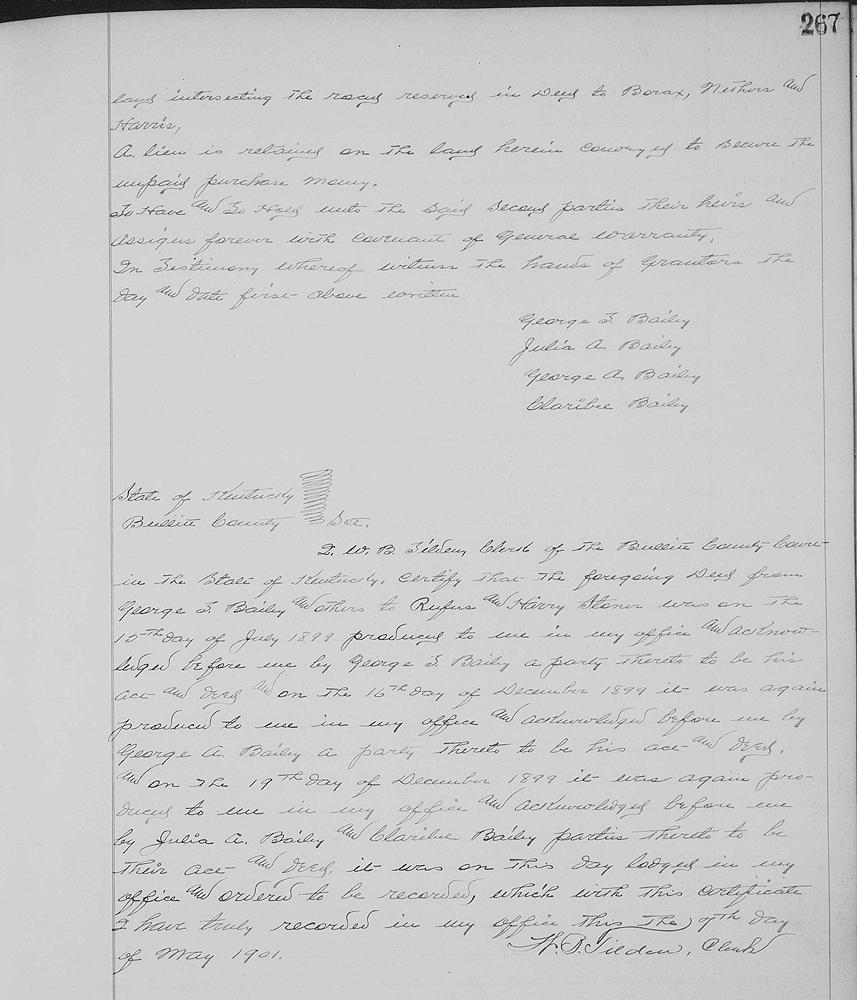 267
land intersecting the road reserved in Deed to Borax, Nethers and
Harris,
A. lien is retained on the land herein conveyed to secure the
unpaid purchase money.
To Have and To Hold unto the said second parties their heirs and
assigns forever with covenant of General Warranty.
In Testimony whereof witness the hands of Grantors the
day and date first above written
George T. Bailey
Julia A. Bailey
George A. Bailey
Claribee Bailey
State of Kentucky
Bullitt County Sct.
I. W. B. Tilden, Clerk of the Bullitt County Court
in the State of Kentucky, certify that the foregoing Deed from
George T. Bailey and others to Rufus and Harry Stoner was on the
15th day of July 1899 produced to me in my office and acknow-
ledged before me by George T Bailey a party thereto to be his
act and deed and on the 16th day of December 1899 it was again
produced to me in my office and acknowledged before me by
George A. Bailey a party thereto to be his act and deed.
and on the 19th day of December 1899 it was again pro-
duced to me in my office and acknowledged before me
by Julia A. Bailey and Claribee Bailey parties thereto to be
their act and deed, it was on this day lodged in my
office and ordered to be recorded, which with this certificate
I have truly recorded in my office this the 7th day
of May 1901. W. B. Tilden, Clerk